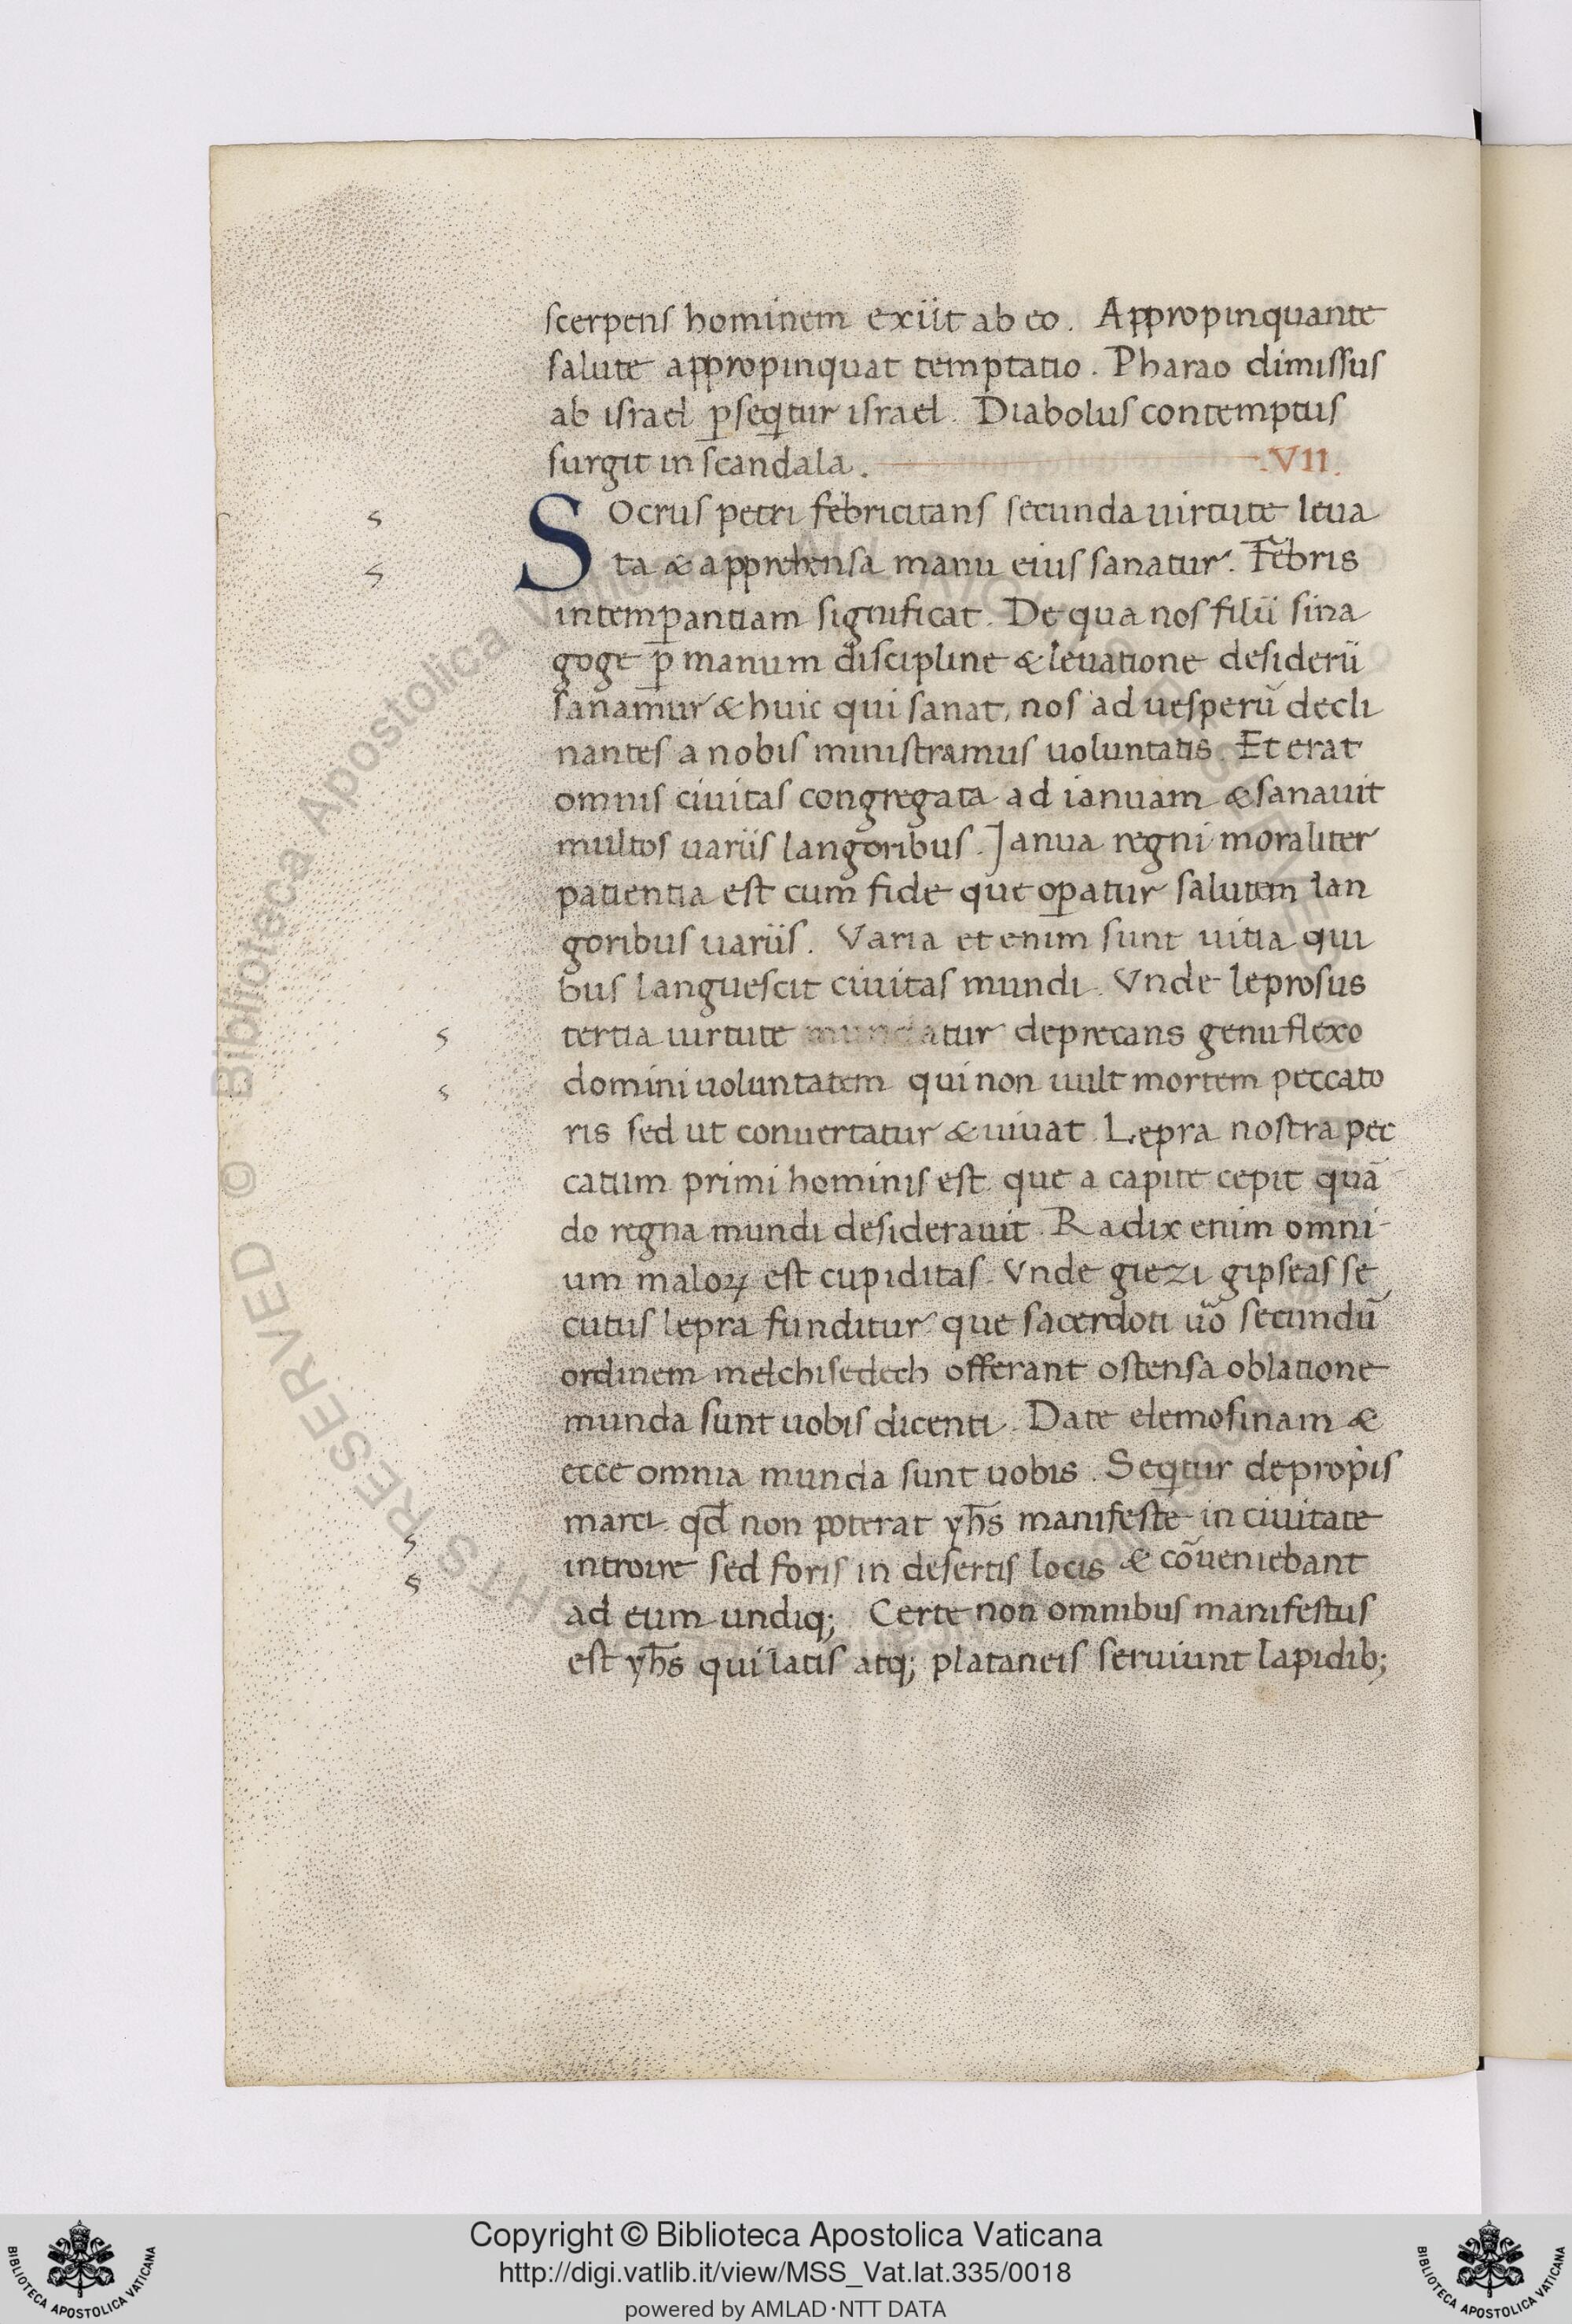 scerpens hominem exiit ab eo. Appropinquante
salute appropinquat temptatio. Pharao dimissus
ab israel p̱seq̇tur israel. Diabolus contemptus
surgit in scandala. .VII.
Socrus petri febricitans secunda uirtute leua
ta & apprehensa manu eius sanatur. Febris
intemp̱antiam significat. De qua nos filii sina
goge p̱ manum discipline & leuatione desiderii
sanamur & huic qui sanat, nos ad uesperū decli
nantes a nobis ministramus uoluntatis. Et erat
omnis ciuitas congregata ad ianuam & sanauit
multos uariis langoribus. Janua regni moraliter
patientia est cum fide que op̱atur salutem lan
goribus uariis. Varia et enim sunt uitia qui
bus languescit ciuitas mundi. Vnde leprosus
tertia uirtute mundatur deprecans genu flexo
domini uoluntatem qui non uult mortem peccato
ris sed ut conuertatur & uiuat. Lepra nostra pec
catum primi hominis est. que a capite cepit quā
do regna mundi desiderauit. Radix enim omni-
um maloꝝ est cupiditas. Vnde giezi gipseas se
cutus lepra funditur que sacerdoti uo̅ secundū
ordinem melchisedech offerant ostensa oblatione
munda sunt uobis dicenti. Date elemosinam &
ecce omnia munda sunt uobis. Seq̇tur de prop̍is
marci. qd̄ non poterat yh̄s manifeste in ciuitate
introire sed foris in desertis locis & cōueniebant
ad eum undiq; Certe non omnibus manifestus
est yh̄s qui latis atq; plataneis seruiunt lapidib;
© Biblioteca Apostolica Vaticana
RIGHTS RESERVED
Copyright © Biblioteca Apostolica Vaticana
http://digi.vatlib.it/view/MSS_Vat.lat.335/0018
powered by AMLAD·NTT DATA
BIBLIOTECA APOSTOLICA VATICANA
BIBLIOTECA APOSTOLICA VATICANA